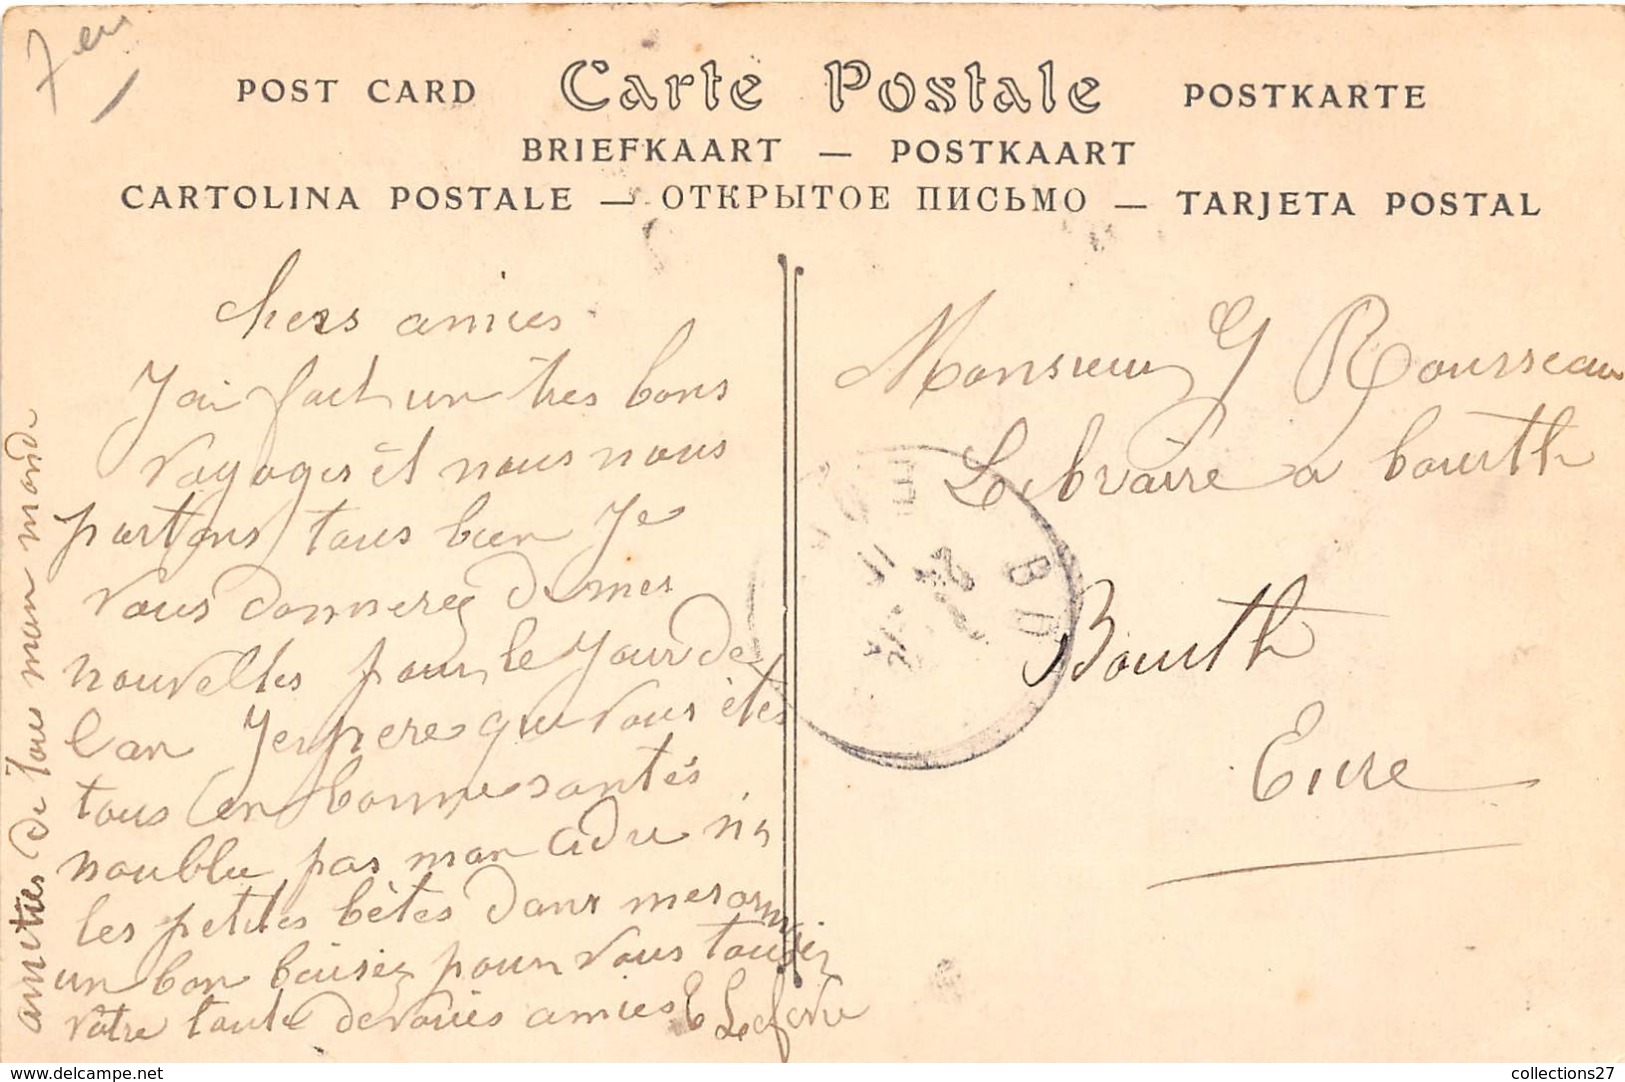 7 eu
POST CARD Carte Postale POSTKARTE
BRIEFKAART — POSTKAART
CARTOLINA POSTALE — ОТКРЫТОЕ ПИСЬМО — TARJETA POSTAL
chers amies
J'ai fait un très bons
voyages et nous nous
partons tous bien Je
vous donnerez de mes
nouvelles pour le Jour de
l'an J'esperes que vous êtes
tous en bonne santés
noublu pas mon adru ni
les petites bêtes dans mes
un bon baisez pour vous tous
votre toute devouées amies E Lefevre
amities de tous mon monde
Monsieur G Rousseau
Lebraire a bourth
Bourth
Eure
collections27